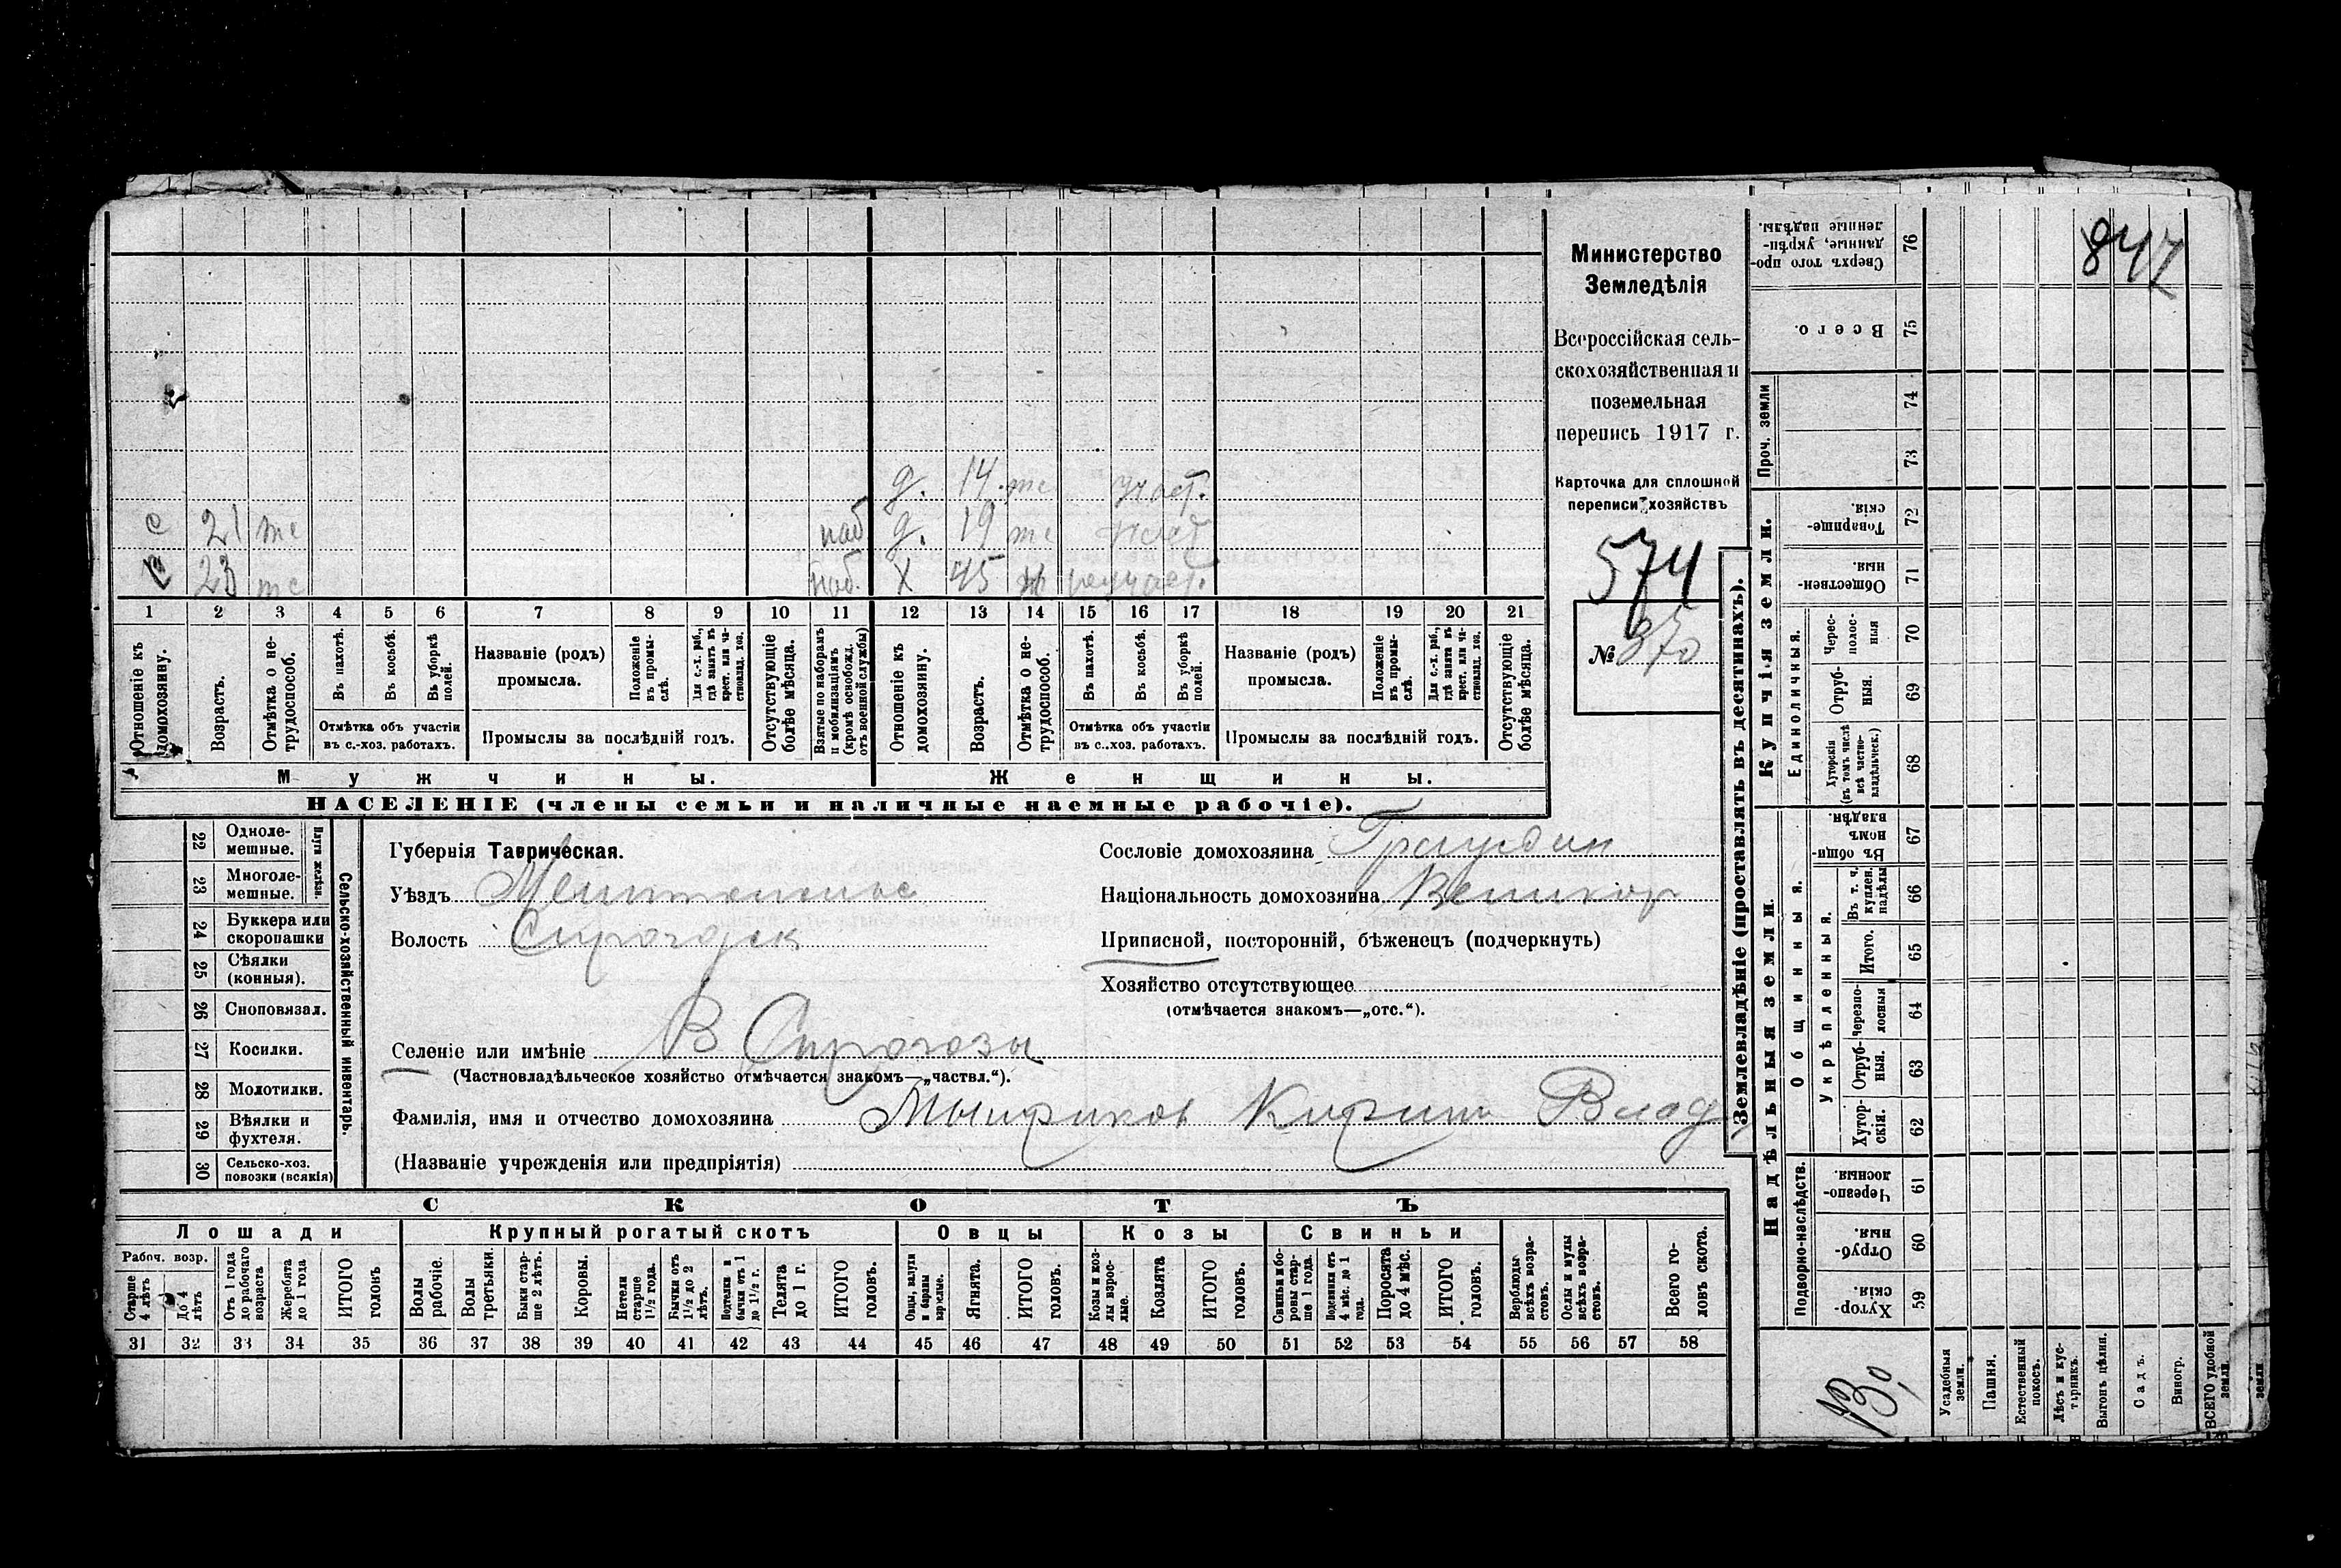 847
Министерство
Земледѣлія
Всероссійская сель-
скохозяйственная и
поземельная
перепись 1917 г.
Карточка для сплошной
переписи хозяйствъ
574
№ 370
д. 14. те участ.
с 21 те наб д. 19 те участ
23 те наб. Х 45 неучаст.
1 2 3 4 5 6 7 8 9 10 11 12 13 14 15 16 17 18 19 20 21
Отношеніе къ домохозяину.
Возрастъ.
Отмѣтка о не-трудоспособ.
Въ пахотѣ.
Въ косьбѣ.
Въ уборкѣ полей.
Отмѣтка объ участіи
въ с.-хоз. работахъ.
Названіе (родъ)
промысла.
Положеніе въ промы-слѣ.
Для с.-х. раб., гдѣ занятъ въ крест. или ча-стновлад. хоз.
Промыслы за послѣдній годъ.
Отсутствующіе болѣе мѣсяца.
Взятые по наборамъ и мобилизаціямъ (кромѣ освобожд. отъ военной службы)
Отношеніе къ домохозяину.
Возрастъ.
Отмѣтка о не-трудоспособ.
Въ пахотѣ.
Въ косьбѣ.
Въ уборкѣ полей.
Отмѣтка объ участіи
въ с..хоз. работахъ.
Названіе (родъ)
промысла.
Положеніе въ промы-слѣ.
Для с.-х. раб., гдѣ занята въ крест. или ча-стновлад. хоз.
Промыслы за послѣдній годъ.
Отсутствующіе болѣе мѣсяца.
Мужчины.
Женщины.
НАСЕЛЕНІЕ (члены семьи и наличные наемные рабочіе).
22 Одноле-мешные.
23 Многоле-мешные.
Плуги желѣзн.
24 Буккера или скоропашки
25 Сѣялки (конныя).
26 Сноповязал.
27 Косилки.
28 Молотилки.
29 Вѣялки и фухтеля.
30 Сельско-хоз. повозки (всякія)
Сельско-хозяйственный инвентарь.
Губернія Таврическая.
Уѣздъ
Волость
Селеніе или имѣніе В
(Частновладѣльческое хозяйство отмѣчается знакомъ—„частвл.“).
Фамилія, имя и отчество домохозяина Влад
(Названіе учрежденія или предпріятія)
Сословіе домохозяина
Національность домохозяина Великор
Приписной, посторонній, бѣженецъ (подчеркнуть)
Хозяйство отсутствующее
(отмѣчается знакомъ—„отс.“).
СКОТЪ
Лошади
Крупный рогатый скотъ
Овцы
Козы
Свиньи
Рабоч. возр.
Старше 4 лѣтъ
До 4 лѣтъ
Отъ 1 года до рабочаго возраста
Жеребята до 1 года
ИТОГО головъ
Волы рабочіе.
Волы третьяки.
Быки стар-ше 2 лѣтъ.
Коровы.
Нетели старше 1½ года.
Бычки отъ 1½ до 2 лѣтъ.
Подтелки и бычки отъ 1 до 1½ г.
Телята до 1 г.
ИТОГО головъ.
Овцы, валухи и бараны взрослые.
Ягнята.
ИТОГО головъ.
Козы и коз-лы взрос-лые.
Козлята
ИТОГО головъ.
Свиньи и бо-ровы стар-ше 1 года.
Подсвинки отъ 4 мѣс. до 1 года.
Поросята до 4 мѣс.
ИТОГО головъ.
Верблюды всѣхъ возра-стовъ.
Ослы и мулы всѣхъ возра-стовъ.
Всего го-ловъ скота.
31 32 33 34 35 36 37 38 39 40 41 42 43 44 45 46 47 48 49 50 51 52 53 54 55 56 57 58
Землевладѣніе (проставлять въ десятинахъ).
Купчія земли.
Надѣльныя земли.
Проч. земли
Единоличныя.
Общинныя.
Укрѣпленныя.
Подворно-наслѣдств.
76 Сверхъ того про-данные, укрѣп-ленные надѣлы.
75 Всего.
74
73
72 Товарище-скія.
71 Обществен-ныя.
70 Черес-полос-ныя
69 Отруб-ныя.
68 Хуторскія (въ томъ числѣ всѣ частно-владѣльческ.)
67 Въ общи-номъ владѣн.
66 Въ т. ч. куплен. надѣлы
65 Итого.
64 Черезпо-лосныя
63 Отруб-ныя.
62 Хутор-скія.
61 Черезпо-лосныя
60 Отруб-ныя.
59 Хутор-скія
Усадебныя земли.
Пашня.
Естественный покосъ.
Лѣсъ и кус-тарникъ.
Выгонъ цѣлин.
Садъ.
Виногр.
ВСЕГО удобной земли.